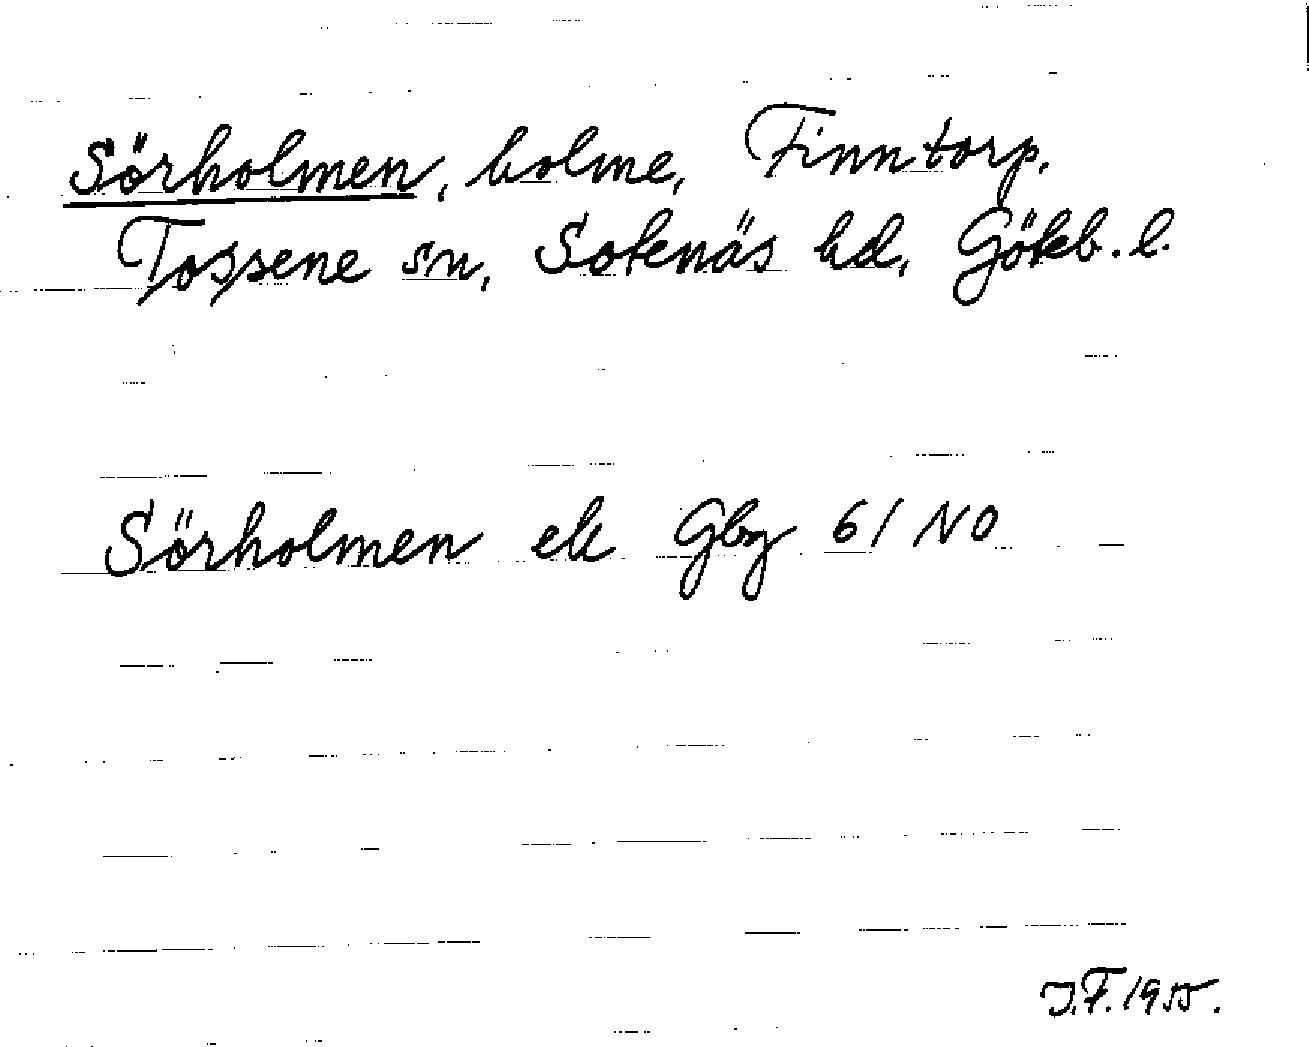 Sörholmen, holme, Finntorp,
Tossene sn, Sotenäs hd, Göteb. l.
Sörholmen ek Gbg 61 NO
J.F. 1955.